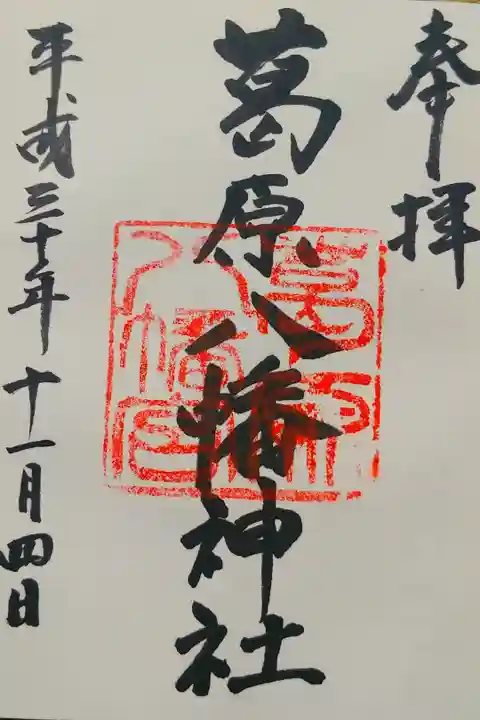 奉拝
葛原八幡神社
葛原
八幡宮
平成三十年十一月四日